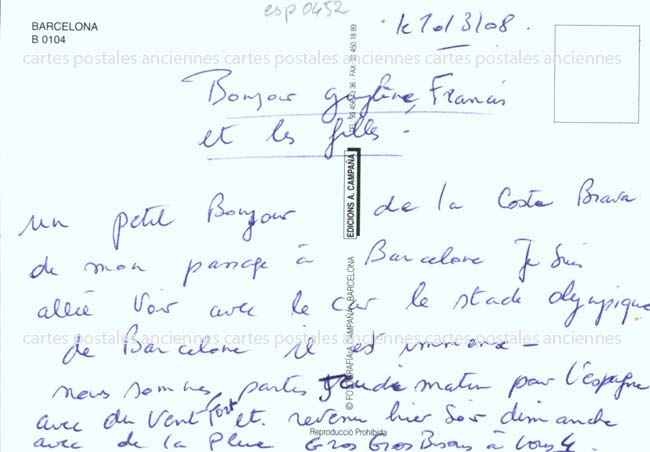 esp 0452
BARCELONA
B 0104
le 10/3/08.
cartes postales anciennes cartes postales anciennes cartes postales anciennes
Bonjour Francis
et les filles.
un petit Bonjour de la Costa Brava
de mon passage à Barcelone Je suis
allée voir avec le car le stade olympique
cartes postales anciennes cartes postales anciennes cartes postales anciennes
de Barcelone il est immense -
nous sommes parties matin pour l'espagne
avec du vent Fort et revenu hier soir dimanche
avec de la Pluie Gros Gros Bisous à vous 4
EDICIONS A. CAMPAÑA
© FOTOGRAFIA A. CAMPAÑA, BARCELONA
Reproducció Prohibida